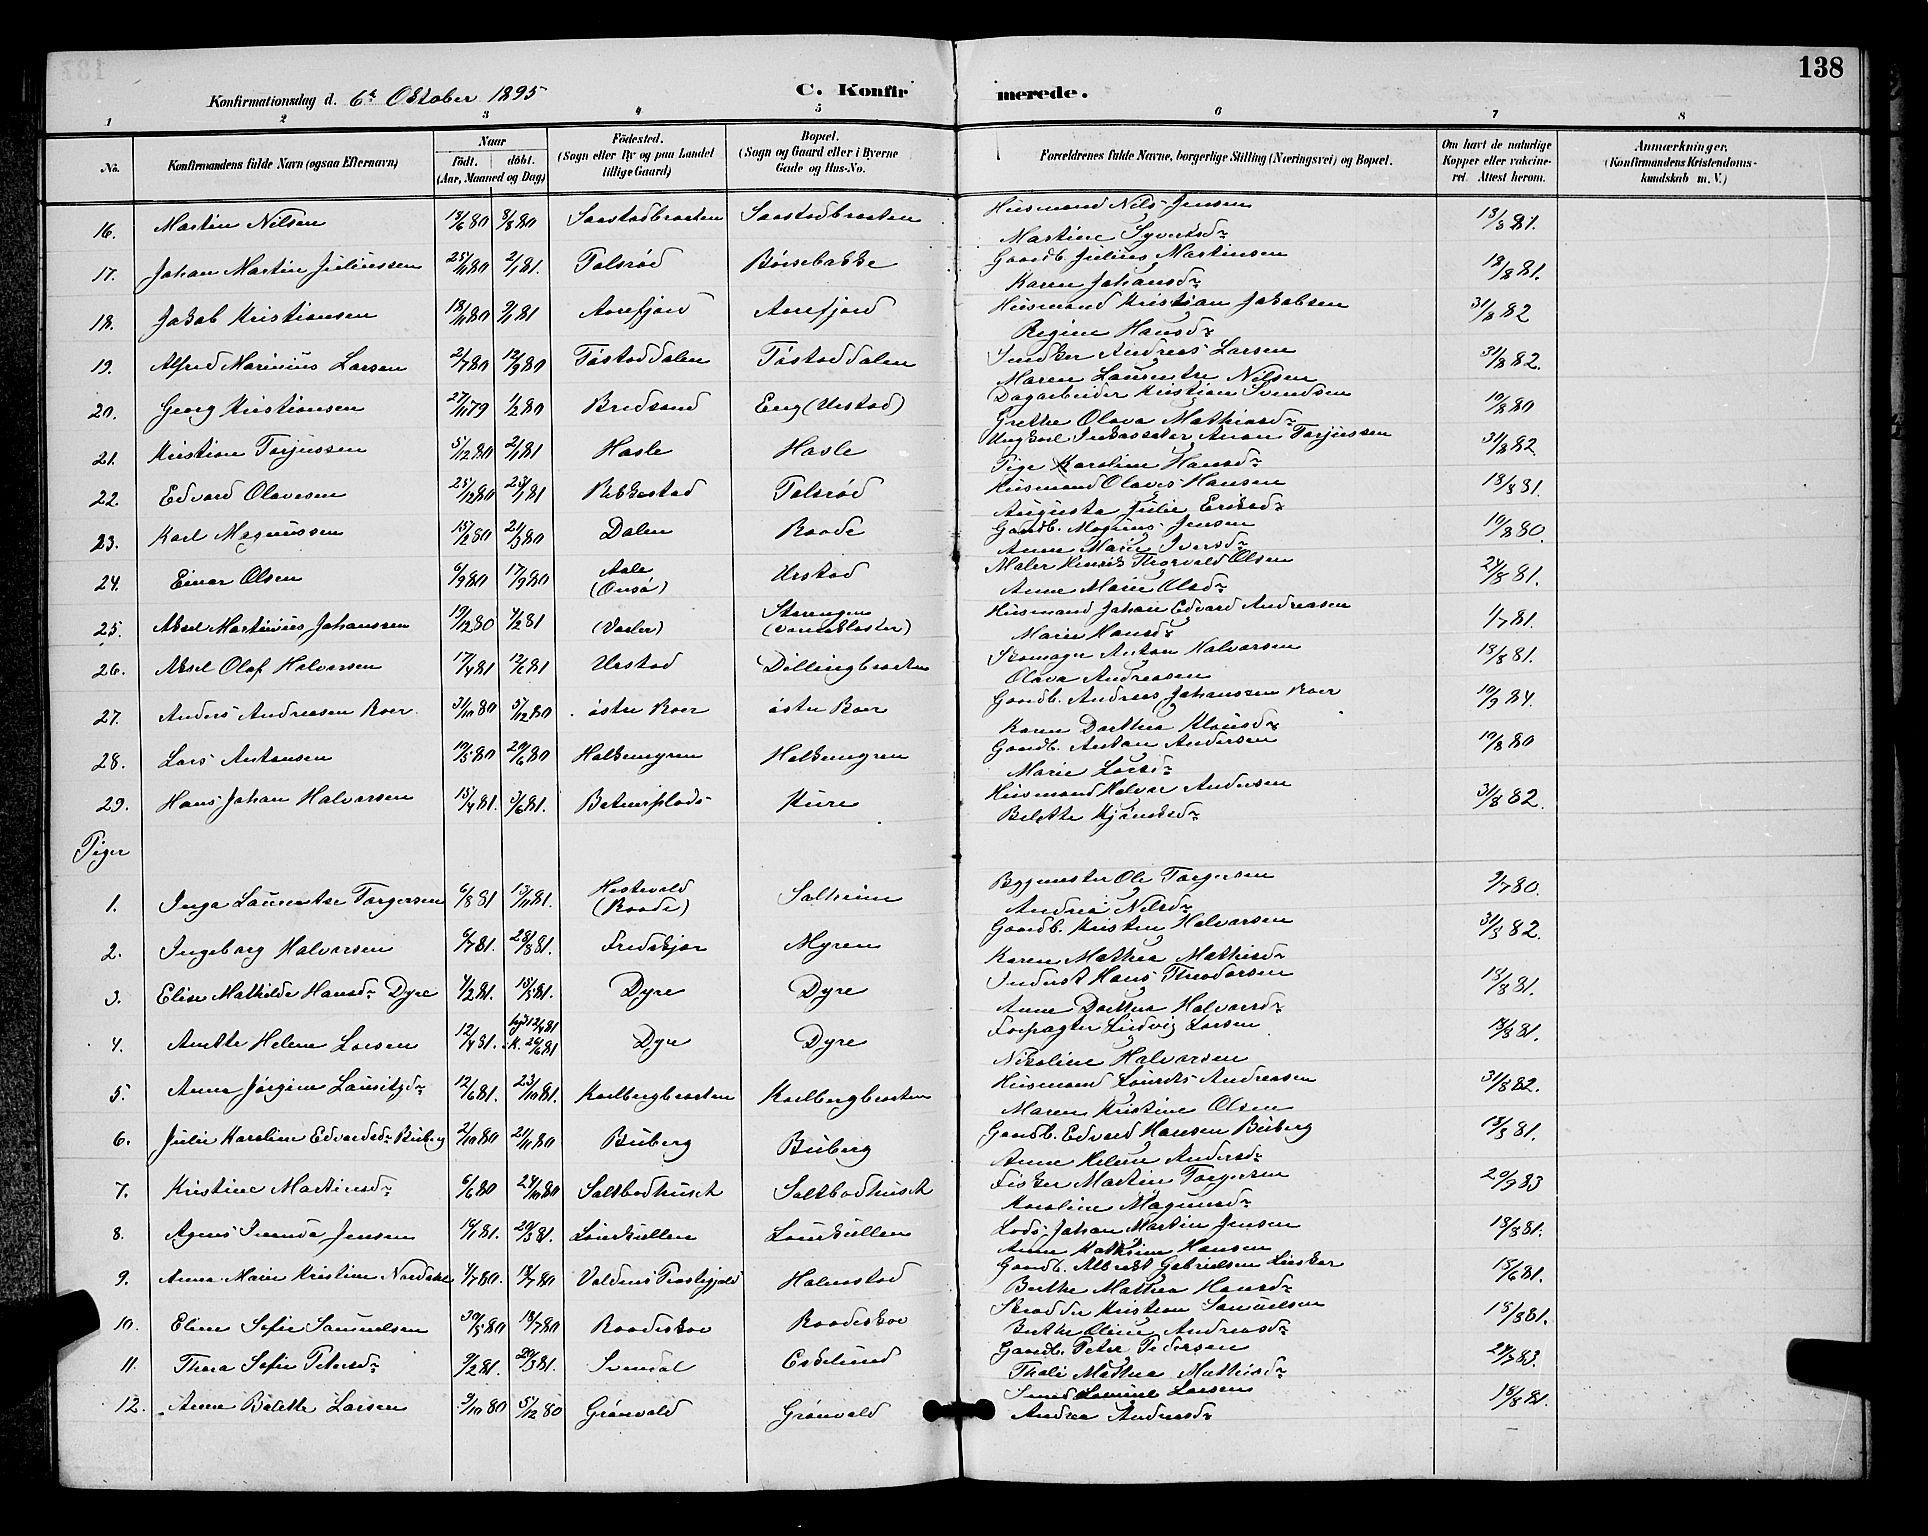 138
Konfirmationsdag d. 6te Oktober 1895
C. Konfirmerede.
1 2 3 4 5 6 7 8
No. Konfirmandens fulde Navn (ogsaa Efternavn) Naar födt. döbt. (Aar, Maaned og Dag) Födested. (Sogn eller By og paa Landet tillige Gaard) Bopæl. (Sogn og Gaard eller i Byerne Gade og Hus-No. Forældrenes fulde Navne, borgerlige Stilling (Næringsvei) og Bopæl. Om havt de naturlige Kopper eller vakcineret. Attest herom. Anmærkninger, (Konfirmandens Kristendomskundskab m. V.)
16. Martin Nilsen 13/6 80 3/8 80 Saastadbraaten Saastadbraaten Husmand Nils Jensen
Martine Syvertsdr 13/8 81.
17. Johan Martin Juliussen 25/11 80 2/1 81. Tolsrød Börsebakke Gaardb. Julius Martinsen
Karen Johansdr 18/8 81.
18. Jakob Kristiansen 18/11 80 9/1 81 Aarefjord Aarefjord Husmand Kristian Jakobsen
Regine Hansdr 31/8 82
19. Alfred Marinius Larsen 2/7 80 12/9 80 Töstaddalen Töstaddalen Snedker Andreas Larsen
Maren Laurentse Nilsen 31/8 82.
20. Georg Kristiansen 27/11 79 1/2 80 Bredsand Eng (Urstad) Dagarbeider Kristian Svendsen
Grethe Olava Mathiasdr 10/8 80
21. Kristian Torjussen 5/12 80 2/1 81 Hasle Hasle Ungkarl Inkassator Anton Torjussen
Pige Karoline Hansdr 31/8 82
22. Edvard Olavesen 25/12 80 Rekkestad Tolsrød Husmand Olaves Hansen
Augusta Julie Eriksdr 13/8 81.
23. Karl Magnussen 15/2 80 21/3 80 Dalen Raade Gaardb. Magnus Jensen
Anne Marie Iversdr 10/8 80.
24. Einar Olsen 6/9 80 17/9 80 Aale (Onsö) Urstad Maler Henrik Thorvald Olsen
Anne Marie Olsdr 24/8 81.
25. Aksel Martinius Johanssen 19/12 80 4/2 81 (Vaaler) Starengen (Værnekloster) Husmand Johan Edvard Andreasen
Marie Hansdr 1/7 81.
26. Aksel Olaf Halvorsen 17/4 81 12/6 81 Urstad Dillingbraaten Skomager Anton Halvorsen
Olava Andreasen 13/8 81.
27. Anders Andreasen Roer. 3/10 80 5/12 80 östre Roer östre Roer Gaardb. Andreas Johanssen Roer
Karen Dorthea Klausdr 10/9 84.
28. Lars Antonsen 10/5 80 20/6 80 Halkemyren Halkemyren Gaardb. Anton Andersen
Marie Larsdr 10/8 80
29. Hans Johan Halvorsen 15/4 81. 3/6 81. Kure Husmand Halvor Andersen
Belette 31/8 82.
Piger
1. Inga Laurentse Torgersen 6/8 81 13/11 81. Hestevold (Raade) Saltreim Bygmester Ole Torgersen
Andrea Nilsdr 9/7 80.
2. Ingeborg Halvorsen 6/7 81. 28/8 81. Fredskjær Myren Gaardb. Kristen Halvorsen
Karen Mathea Mathisdr 31/8 82.
3. Elise Mathilde Hansdr Dyre 4/2 81. 15/5 81. Dyre Dyre Inderst Hans Theodorsen
Anne Dorthea Halvorsdr 13/8 81.
4. Anette Helene Larsen 12/4 81. hjd 12/4 81 K. 26/6 81 Dyre Dyre Forpagter Ludvig Larsen
Nikoline Halvorsen 13/8 81.
5. Anna Jörgine Lauritzdr 12/6 81. 23/10 81. Karlbergbraaten Karlbergbraaten Husmand Laurits Andreasen
Maren Kristine Olsen 31/8 82.
6. Julie Karoline Edvardsdr Büberg 2/10 80 21/11 80 Büberg Büberg Gaardb. Edvard Hansen Büberg
Anne Helene Andersdr 13/8 81.
7. Kristine Martinsdr 6/6 80 24/10 80 Saltbodhuset Saltbodhuset Fisker Martin Torgersen
Karoline Magnusdr 20/9 83
8. Agnes Jensen 16/1 81. 20/3 81. Laurkullen Laurkullen Lods Johan Martin Jensen
Anne Mathine Hansen 18/8 81.
9. Anna Marie Kristine 4/7 80. 18/7 80 Valdens Præstegjeld Halmstad Gaardb. Albrekt Gabrielsen
Berthe Mathea Hansdr 15/6 81.
10. Eline Sofie Samuelsen 30/5 80 18/7 80 Raadeskov Raadeskov Skrædder Kristian Samuelsen
Berthe Oline Andreasdr 15/8 81.
11. Thora Sofie Petersdr 9/2 81. 20/3 81. Svendal Eskelund Gaardb. Peter Pedersen
Thale Mathea Mathisdr
12. Anne Belette Larsen 9/10 80 5/12 80 Grönvold Grönvold Smed Larsen
Andrea Andreasdr 18/8 81.